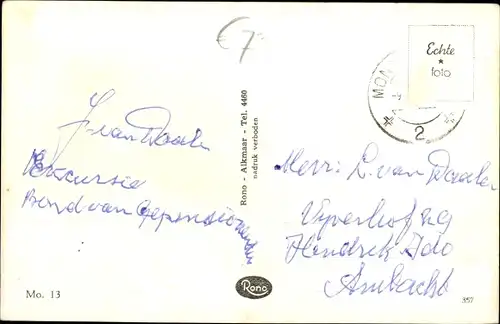 €7
J. van Daalen
Excursie
Bond van Gepensioneerden
Mo. 13
Rono - Alkmaar - Tel. 4460
nadruk verboden
Rono
Echte
foto
MON
2
Herr: L. van Daalen
Vyverhof 29
Hendrik Ido
Ambacht
357